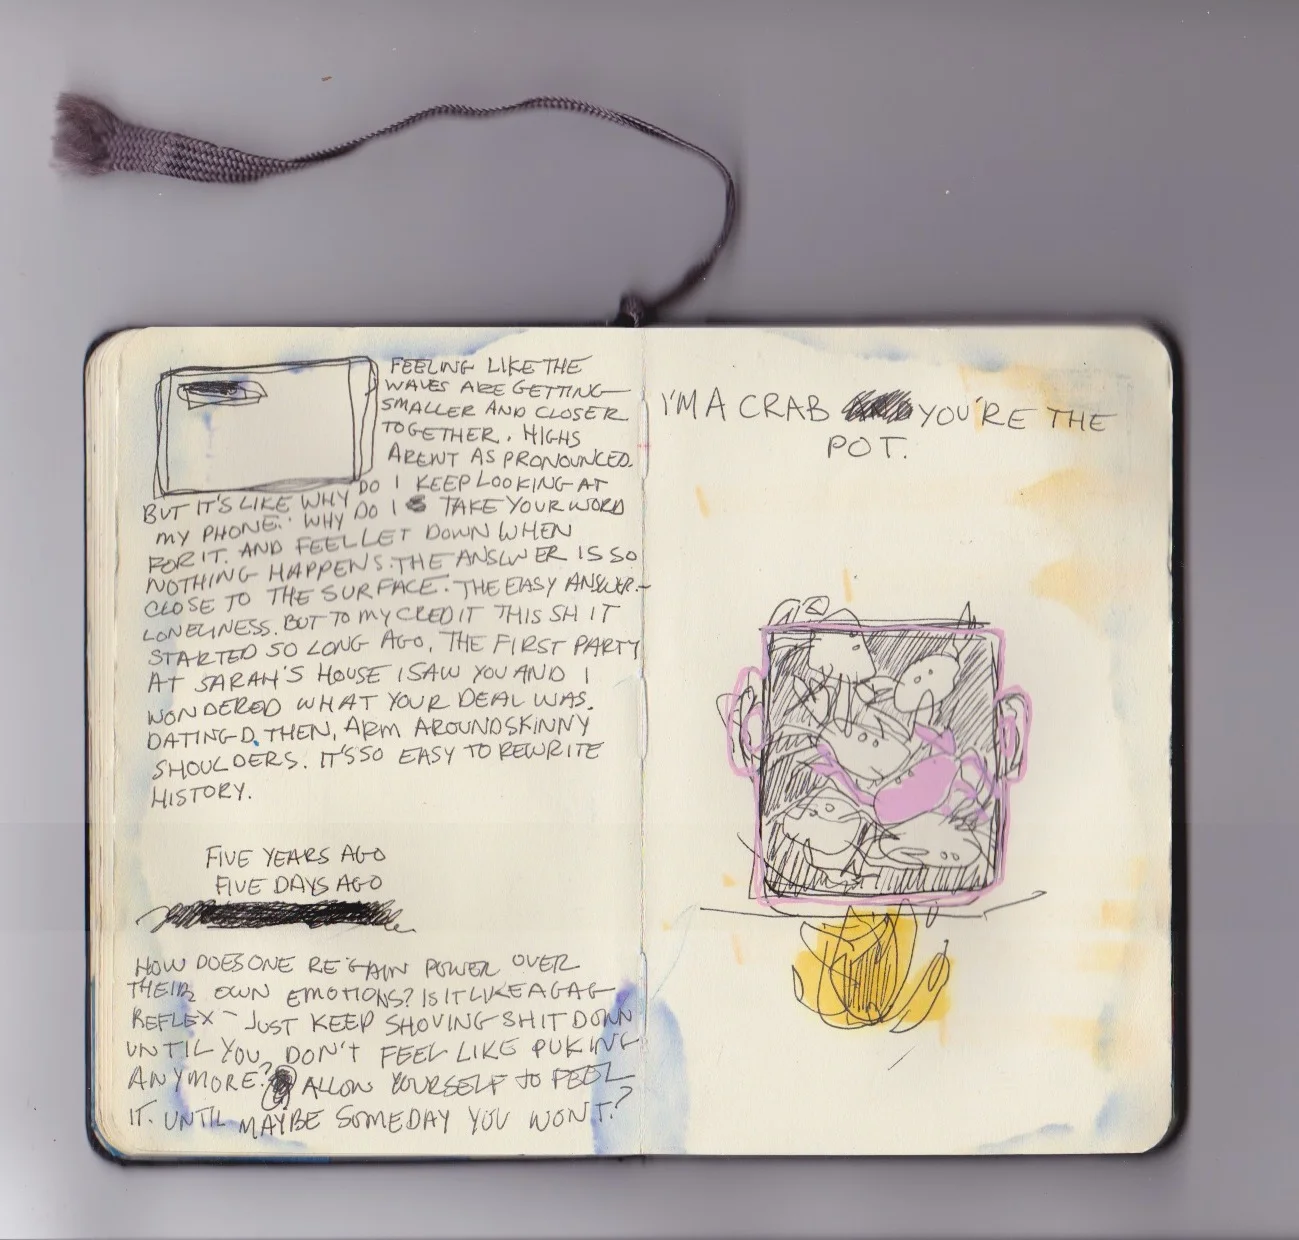 FEELING LIKE THE
WAVES ARE GETTING
SMALLER AND CLOSER
TOGETHER. HIGHS
ARENT AS PRONOUNCED.
BUT IT'S LIKE WHY DO I KEEP LOOKING AT
MY PHONE. WHY DO I TAKE YOUR WORD
FOR IT. AND FEEL LET DOWN WHEN
NOTHING HAPPENS. THE ANSWER IS SO
CLOSE TO THE SURFACE. THE EASY ANSWER -
LONELINESS. BUT TO MY CREDIT THIS SHIT
STARTED SO LONG AGO. THE FIRST PARTY
AT SARAH'S HOUSE I SAW YOU AND I
WONDERED WHAT YOUR DEAL WAS.
DATING D. THEN, ARM AROUND SKINNY
SHOULDERS. IT'S SO EASY TO REWRITE
HISTORY.
FIVE YEARS AGO
FIVE DAYS AGO
HOW DOES ONE REGAIN POWER OVER
THEIR OWN EMOTIONS? IS IT LIKE A GAG
REFLEX - JUST KEEP SHOVING SHIT DOWN
UNTIL YOU DON'T FEEL LIKE PUKING
ANYMORE? ALLOW YOURSELF TO FEEL
IT. UNTIL MAYBE SOMEDAY YOU WON'T?
I'M A CRAB YOU'RE THE
POT.